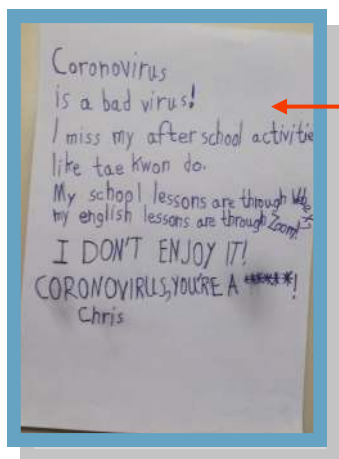 Coronovirus
is a bad virus!
I miss my after school activitie
like tae kwon do.
My school lessons are through Webex,
my english lessons are through Zoom!
I DON'T ENJOY IT!
CORONOVIRUS, YOU'RE A *****!
Chris